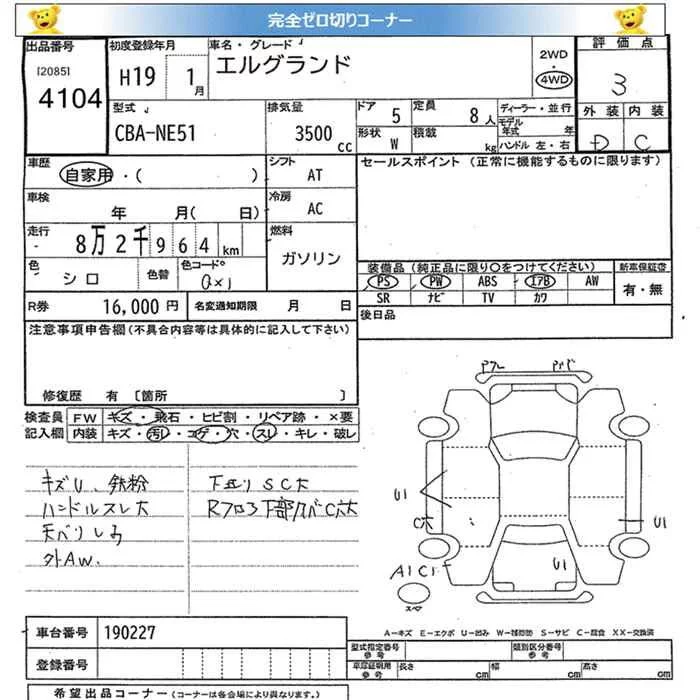 完全ゼロ切りコーナー
出品番号
[2085]
4104
初度登録年月
H19 1月
車名・グレード
エルグランド
2WD
・
4WD
評価点
3
外装 内装
D C
型式
CBA-NE51
排気量
3500 cc
ドア 5
形状 W
定員 8人
積載 kg
ディーラー・並行
モデル年式 年
ハンドル 左・右
車歴
自家用・( )
シフト
AT
セールスポイント (正常に機能するものに限ります)
車検
年 月( 日)
冷房
AC
走行
8万2千964km
燃料
ガソリン
色 シロ
色替
色コード
QX1
装備品 (純正品に限り○をつけてください)
新車保証書
PS PW ABS エアB AW
有・無
SR ナビ TV カワ
R券 16,000円
名変通知期限 月 日
後日品
注意事項申告欄(不具合内容等は具体的に記入して下さい)
修復歴 有 [箇所 ]
検査員記入欄
FW キズ・飛石・ヒビ割・リペア跡・×要
内装 キズ・汚レ・コゲ・穴・スレ・キレ・破レ
キズU、鉄粉
ハンドルスレ大
天バリしみ
外AW.
下回りSC大
Rフロア下部カバーC穴大
U1
C穴
U1
A1C1
U1
スペア
A-キズ E-エクボ U-凹み W-補修跡 S-サビ C-腐食 XX-交換済
車台番号 190227
登録番号
型式指定番号
参考
類別区分番号
参考
車庫証明用
参考
長さ cm
幅 cm
高さ cm
希望出品コーナー (コーナーは各会場により異なります。)